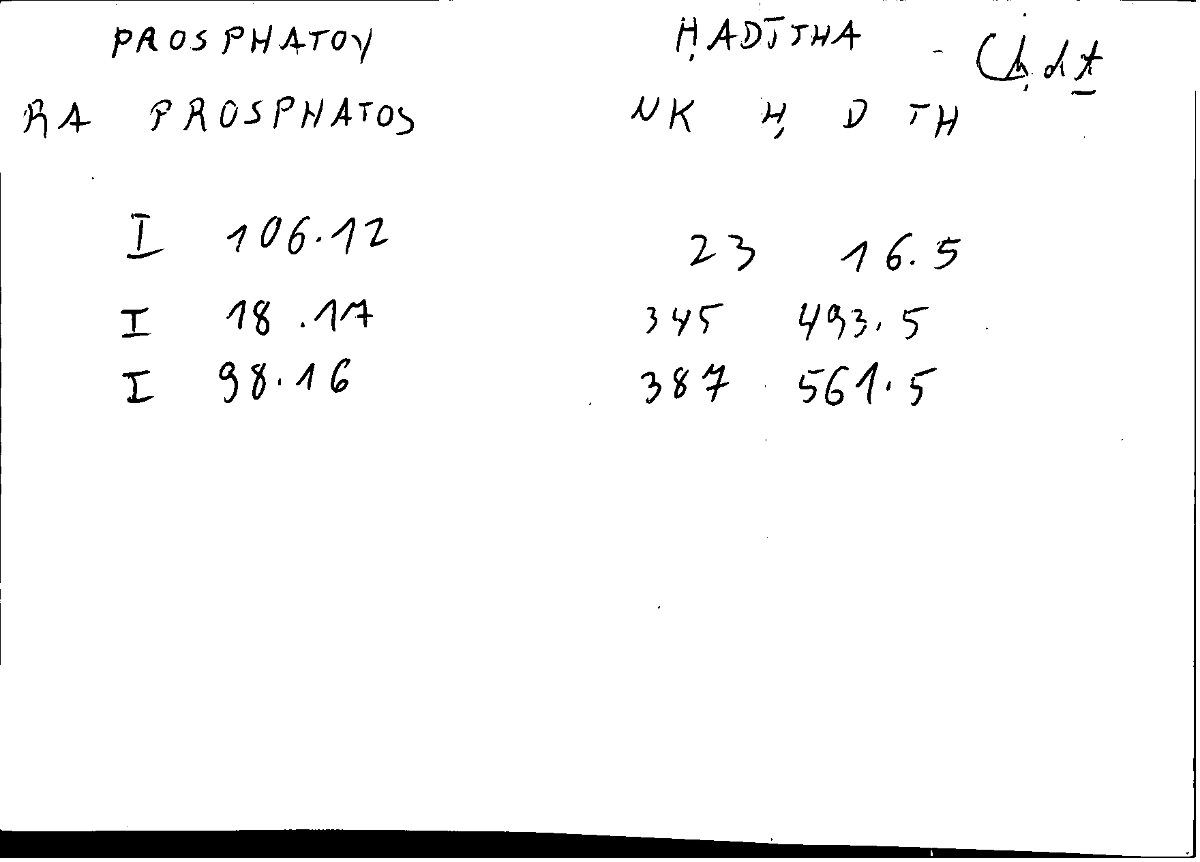 PROSPHATOY ḤADĪTHA - (ḥdṯ
RA PROSPHATOS NK Ḥ D TH
I 106.12 23 16.5
I 18.17 345 493.5
I 98.16 387 561.5